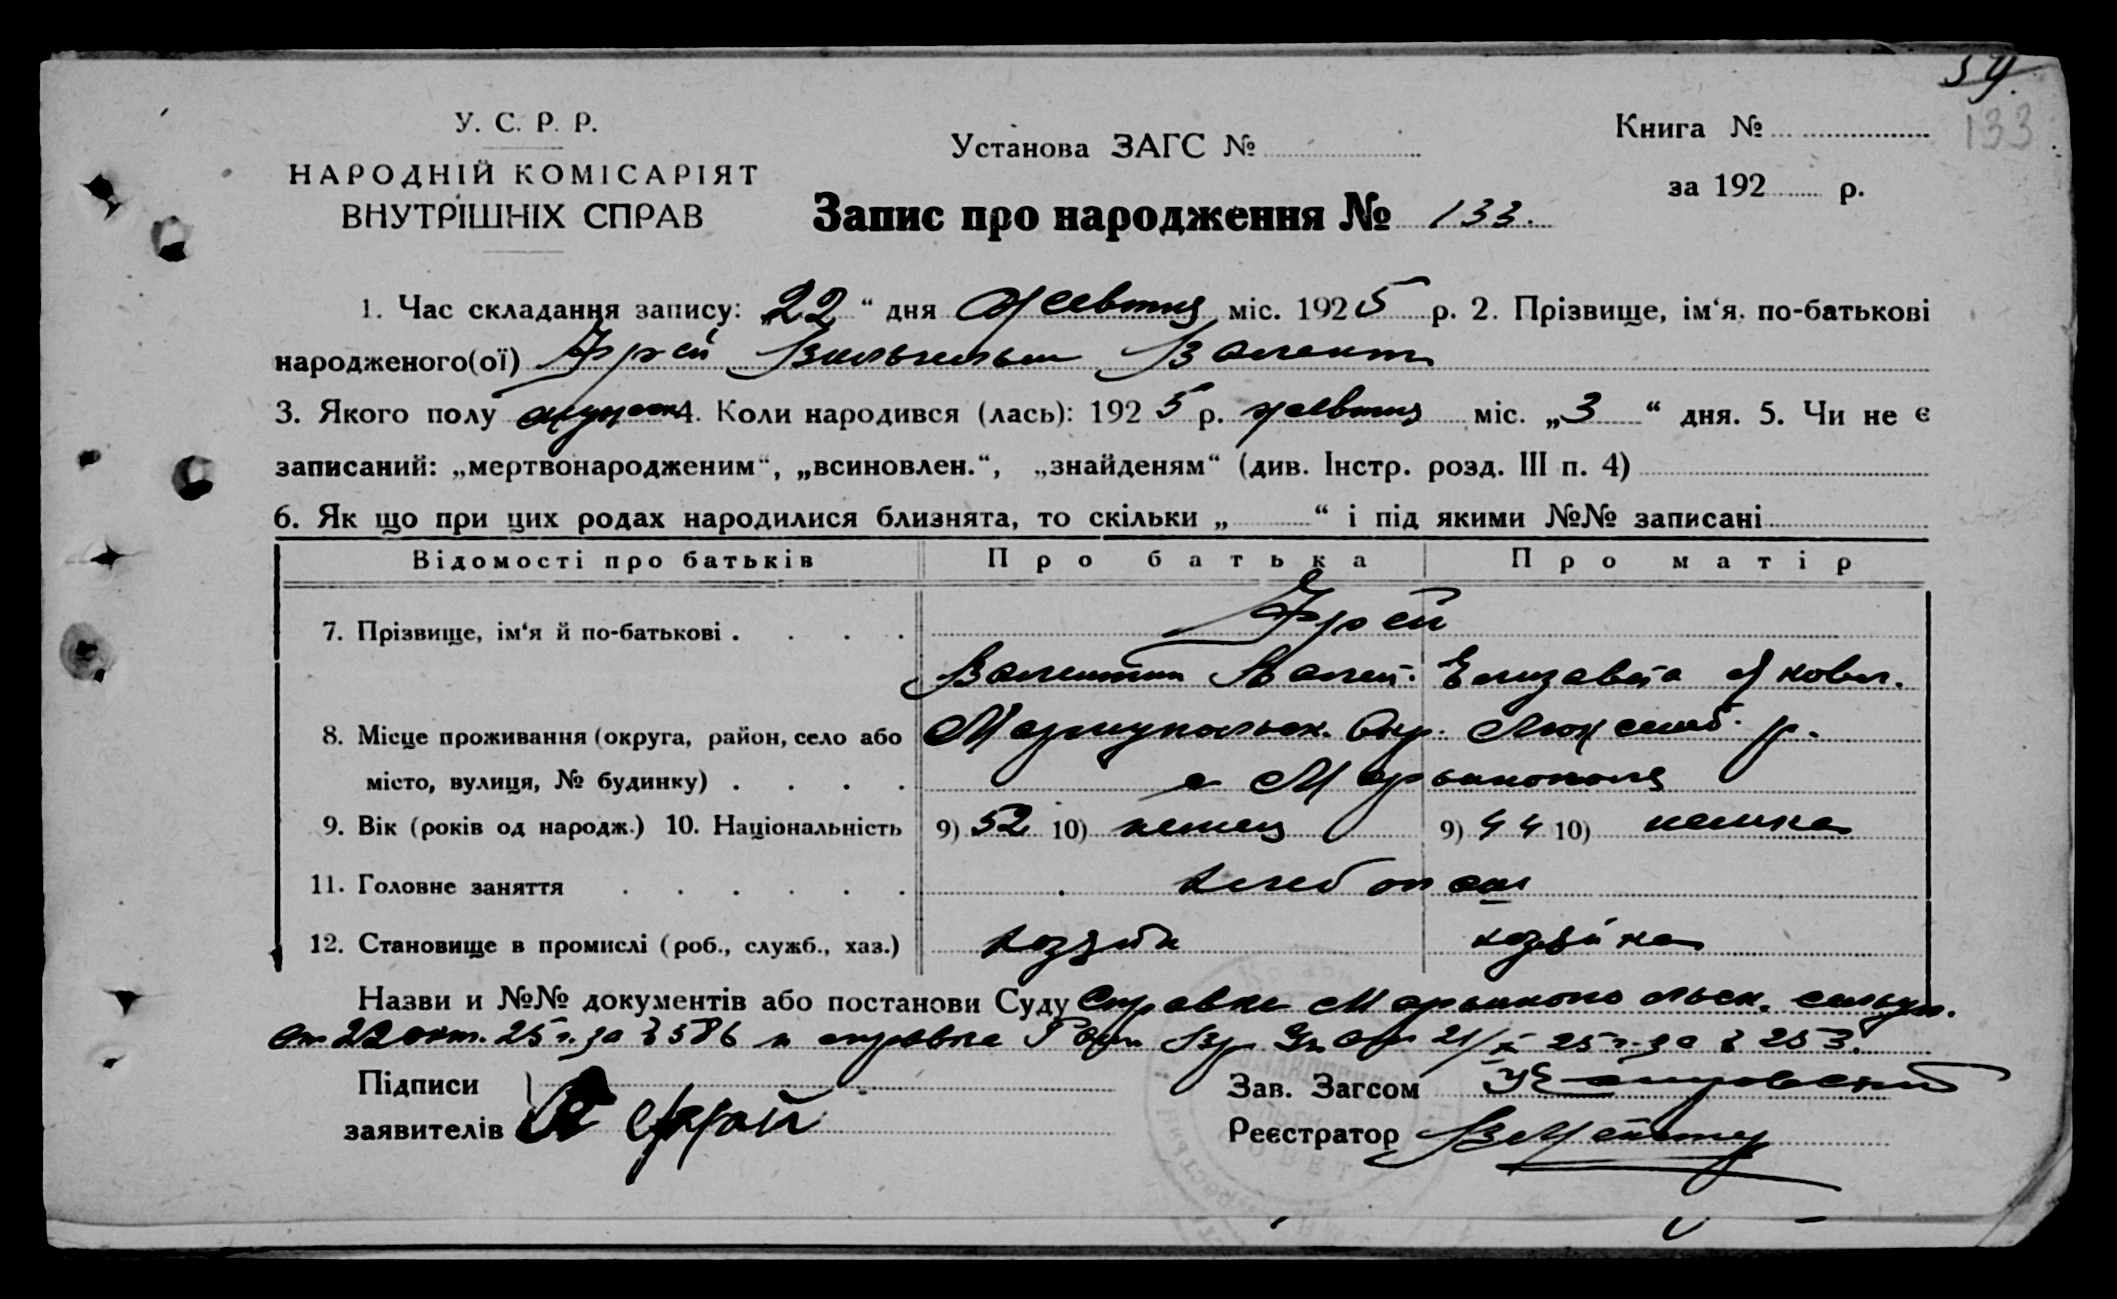 54.
133
У. С. Р. Р.
НАРОДНІЙ КОМІСАРІЯТ
ВНУТРІШНІХ СПРАВ
Установа ЗАГС №
Книга №
за 192 р.
Запис про народження № 133.
1. Час складання запису: „22“ дня жовтня міс. 1925 р. 2. Прізвище, ім‘я, по-батькові
народженого(ої) Фрей Вильгельм Валент
3. Якого полу 4. Коли народився (лась): 1925 р. жовтня міс. „3“ дня. 5. Чи не є
записаний: „мертвонародженим“, „всиновлен.“, „знайденям“ (див. Інстр. розд. III п. 4)
6. Як що при цих родах народилися близнята, то скільки „ “ і під якими №№ записані
Відомості про батьків Про батька Про матір
7. Прізвище, ім‘я й по-батькові . . . . Фрей
Валентин Вален. Елизавета Яковл.
8. Місце проживання (округа, район, село або Мариупольск. Окр. Люксемб. р.
місто, вулиця, № будинку) . . . . с Марьинополя
9. Вік (років од народж.) 10. Національність 9) 52 10) немец 9) 44 10) немка
11. Головне заняття . . . . . . хлебопаш
12. Становище в промислі (роб., служб., хаз.) хозяин хозяйка
Назви и №№ документів або постанови Суду Справка Марьинопольск. сельур.
от 22 окт. 25 г. за № 586 и справка 21/X 25 г. за № 253.
Підписи
заявителів Фрей
Зав. Загсом
Реєстратор